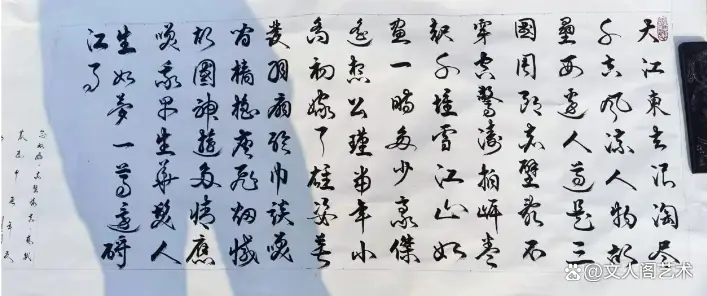 大江東去浪淘尽
千古風流人物故
壘西邊人道是三
國周郎赤壁亂石
穿空驚濤拍岸卷
起千堆雪江山如
畫一時多少豪傑
遙想公瑾當年小
喬初嫁了雄姿英
發羽扇綸巾談笑
間檣櫓灰飛烟滅
故國神遊多情應
笑我早生華髮人
生如夢一尊還酹
江月
@文人阁艺术